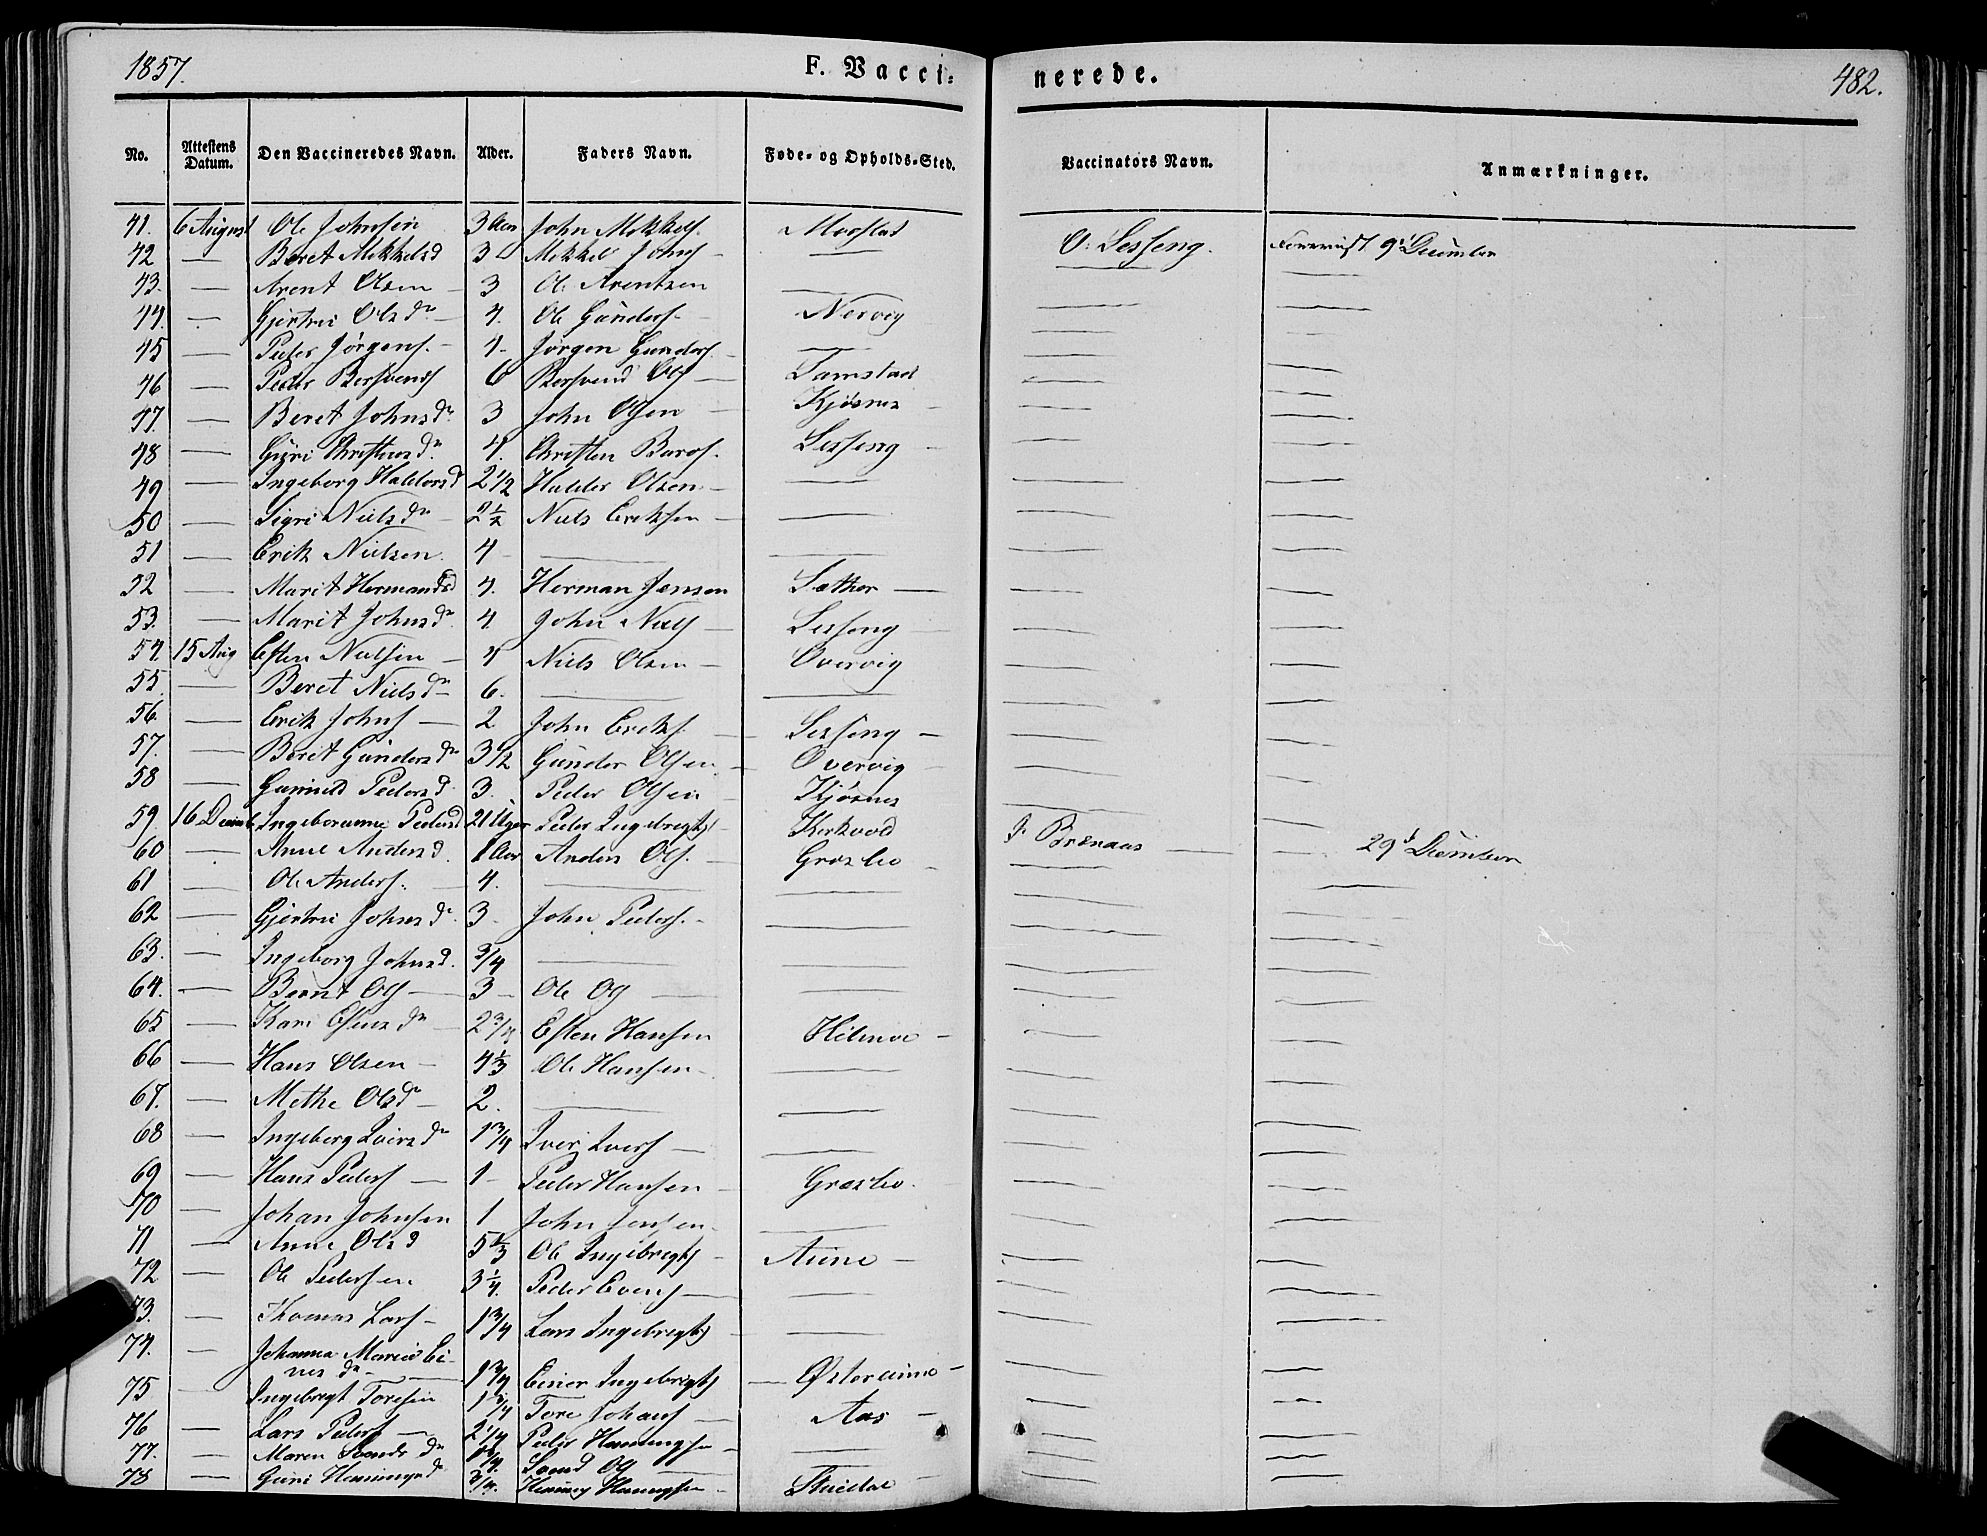 1857. F. Vaccinerede. 482.
No. Attestens Datum. Den Vaccineredes Navn. Alder. Faders Navn. Føde- og Opholds-Sted. Vaccinators Navn. Anmærkninger.
41. 6 August Ole Johnsen 3 Aar John Mikkels. Morstad O. Lesseng. Forevist 9d December
42 — Beret Mikkelsd 3 Mikkel Johns — — — —
43. — Arent Olsen — 3 Ole Arentzen — — —
44. — Gjertrui Olsdr — 4. Ole Gunders. — Nervig — —
45 — Peder Jørgens. — 4 — Jørgen Gunders. — — — —
46 — Peder Bersvends 6 Bersvend Ols — Tamstad — —
47. — Beret Johnsdr 3 John Olsen — Kjøsnes — — —
48 — Guri Christensdr. 4. Christen Baros. Lesseng — — —
49 — Ingeborg Haldorsd 2 1/2 Haldor Olsen — — — —
50 — Sigri Nielsdr — 2 1/2 Niels Eriksen — — — —
51 — Erik Nielsen. 4 — — — — —
52 — Marit Hermandsd 4. Herman Jensen Sæther — — —
53. — Marit Johnsdr. 4. John Niels — Lesseng — — —
54. 15 Aug Esten Nielsen — 4 Niels Olsen — Overvig — —
55. — Beret Nielsdr — 6. — — — —
56. — Erik Johns — 2 John Eriks. — Lesseng — — —
57. — Beret Gundersdr 3 1/2 Gunder Olsen — Overvig — — —
58 — Gunild Pedersd. 3. Peder Olsen — Kjøsnes — —
59. 16 Decemb Ingeboranne Pedersd 21 Uger Peder Ingebrigts — Kirkvold J. Brænaas — —
60 — Anne Andersd. 1 Aar Anders Ols. — Græsli — — — 29d December
61 — Ole Anders. — 4. — — — —
62 — Gjertrui Johnsdr. 3 — John Peders. — — — —
63. — Ingeborg Johnsd. 3/4 — — — —
64. — Bernt Ols — 3 — Ole Ols — — — —
65 — Kari Estensdr — 2 3/4 Esten Hansen Hilmoe — — —
66 — Hans Olsen — 4 1/3 Ole Hansen — — — —
67. — Methe Olsdr — 2. — — — —
68 — Ingeborg Iversdr 1 3/4 Iver Ivers — — — —
69 — Hans Peders — 1 — Peder Hansen — Græsli. — —
70 — Johan Johnsen 1 John Jensen — — — —
71 — Anne Olsd 5 1/3 Ole Ingebrigts — Aune — — —
72 — Ole Pedersen 3 1/4. Peder Evens — — — —
73. — Thomas Lars — 1 3/4 Lars Ingebrigts — — — —
74. — Johanna Marie Ei-
nersdr — 1 3/4 Einer Ingebrigts — Østeraune — — —
75 — Ingebrigt Toresen 1 3/4 Tore Johans — Aas — — —
76 — Lars Peders — 2 1/4 Peder Hemmingsen — — — —
77. — Maren Svendsdr 1/4. Svend Ols — — — —
78 — Guri Hemmingsd 3/4. Hemming Hemmingsen — Stuedal — — —